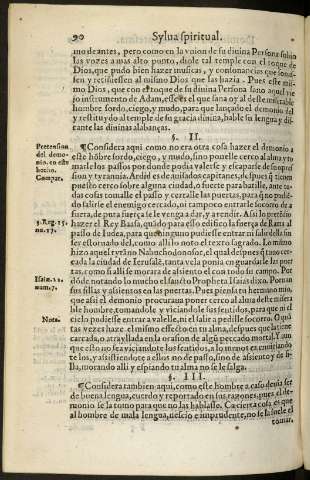 90 Sylua spiritual.
mo de antes, pero como en la vnion de su diuina Persona subio
las vozes a mas alto punto, diole tal temple con el toque de
Dios, que pudo bien hazer musicas, y consonancias que
y al mismo Dios que las hazia. Pues este mis-
mo Dios, que con el toque de su diuina Persona sano aquel vie
jo instrumento de Adam, esse es el que sana oy al deste miserable
hombre sordo, ciego, y mudo, para que lançado el demonio del
y restituydo al temple de su gracia diuina, hable su lengua y dis-
cante las diuinas alabanças.
§. II.
Pretension
del demo-
nio. en este
hecho.
Compar.
¶Considera aqui como no era otra cosa hazer el demonio a
este hōbre sordo, ciego, y mudo, sino ponelle cerco al alma y to
marle los passos por donde podia valerse y escaparse de su opres
sion y tyrannia. Ardid es de auisados capitanes, despues q̃ tienen
puesto cerco sobre alguna ciudad, o fuerte para batille, ante to-
das cosas tomalle el passo y cercalle las puertas, para q̃ no pudiē
do salirse el enemigo cercado, ni tampoco entrarle socorro de a
fuera, de pura fuerça se le venga a dar, y a rendir. Assi lo pretēdio
3. Reg. 15.
nu. 17.
hazer el Rey Baasa, quādo para esso edifico la fuerça de Rama al
passo de Iudea, para que ninguno pudiesse entrar ni salir della sin
ser estornado del, como alli lo noto el texto sagrado. Lo mismo
hizo aquel tyrāno Nabuchodonosor, el qual despues q̃ tuuo cer-
cada la ciudad de Ierusalē, tanta vela ponia en guardalle las puer
tas, como si alli se morara de asiento el con todo su campo. Por
Isaiæ. 22.
num. 7.
dōde notando lo mucho el sancto Propheta Isaias dixo. Pornan
sus sillas y assientos en las puertas. Pues piensa tu hermano mio,
que assi el demonio procuraua poner cerco al alma deste misera
ble hombre, tomandole y viciandole sus sentidos, para que ni el
Nota.
cielo pudiesse entrar a valelle, ni el salir a pedille socorro. O quā
tas vezes haze el mismo effecto en tu alma, despues que la tiene
carcada, o atrayllada en la orasion de algū peccado mortal. Y aun
que esto no sea viciandote los sentidos, a lo menos es
te los, y assistiendote a ellos no de passo, sino de asiento y de si-
lla, morando alli y espiando tu alma no se le salga.
§. III.
¶Considera tambien aqui, como este hombre a caso deuia ser
de buena lengua, cuerdo y reportado en sus razones, pues el de-
monio se la tomo para que no las hablasse. Ca cierta cosa es que
al hombre de mala lengua, nescio e imprudente, no se la suele el
tomar,